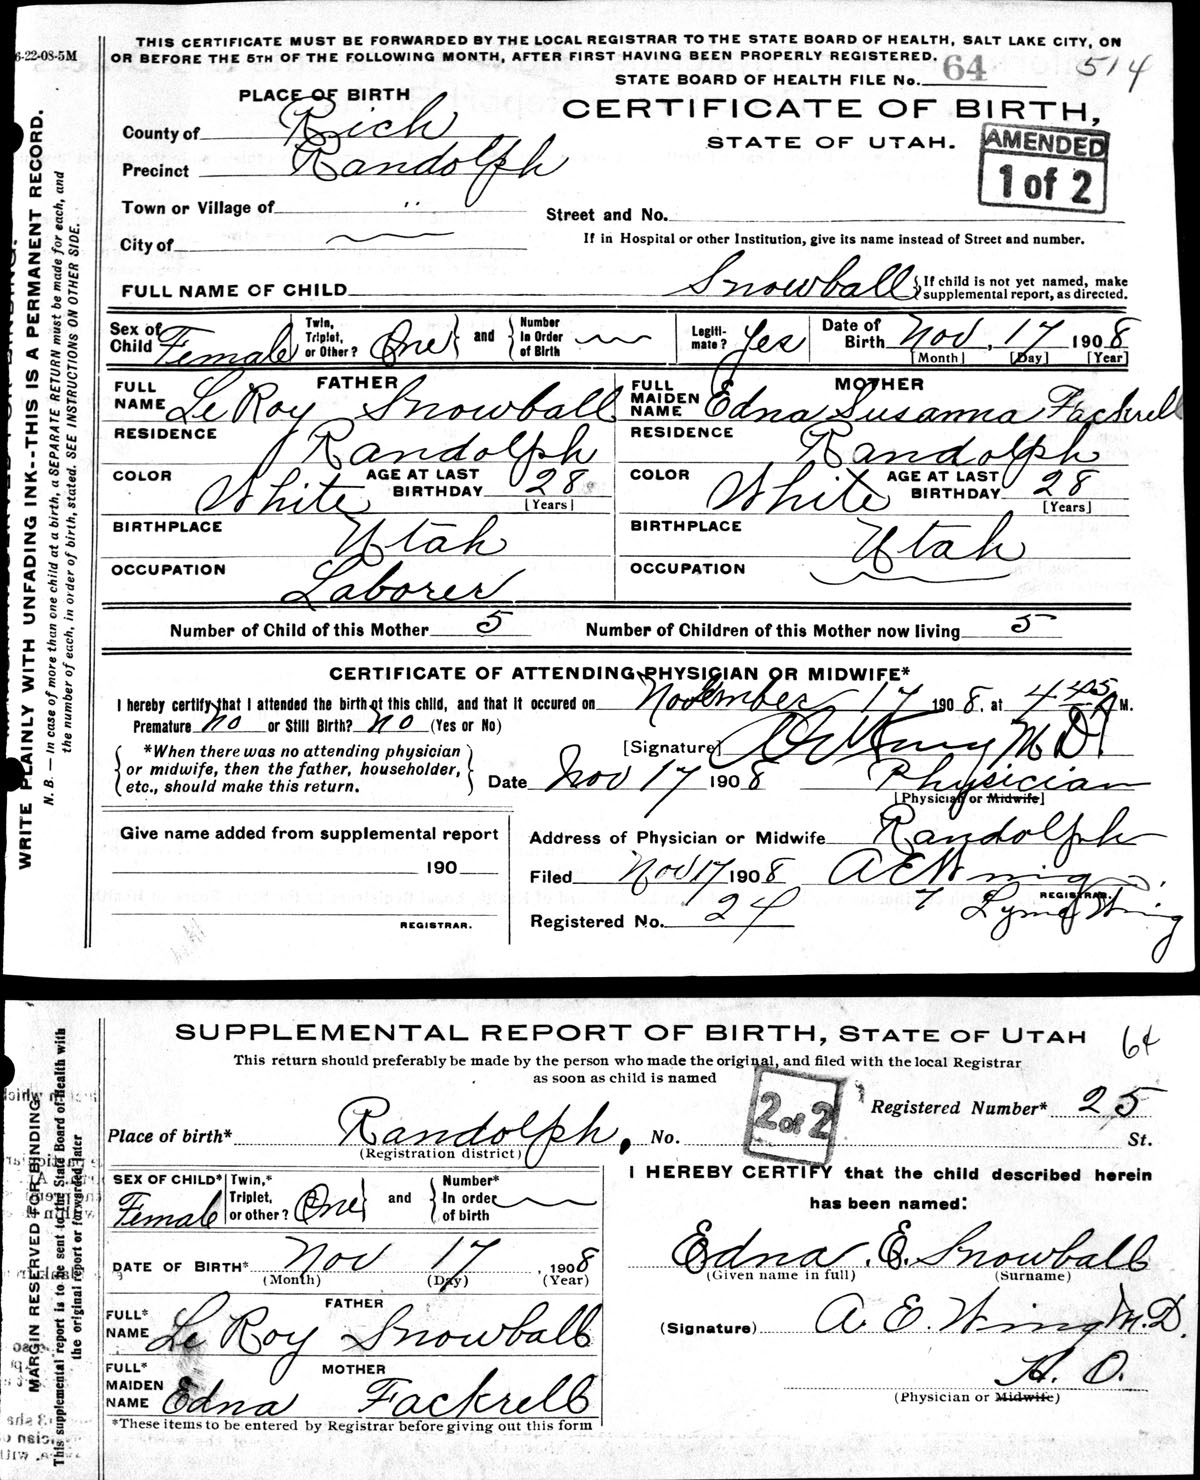 6-22-08-5M
THIS CERTIFICATE MUST BE FORWARDED BY THE LOCAL REGISTRAR TO THE STATE BOARD OF HEALTH, SALT LAKE CITY, ON
OR BEFORE THE 5TH OF THE FOLLOWING MONTH, AFTER FIRST HAVING BEEN PROPERLY REGISTERED.
STATE BOARD OF HEALTH FILE No. 64 514
PLACE OF BIRTH
CERTIFICATE OF BIRTH,
STATE OF UTAH.
AMENDED
1 of 2
County of Rich
Precinct Randolph
Town or Village of "
Street and No.
City of
If in Hospital or other Institution, give its name instead of Street and number.
FULL NAME OF CHILD Snowball { If child is not yet named, make
supplemental report, as directed.
Sex of Child Female Twin, Triplet, or Other? One } and { Number In Order of Birth Legiti- mate? Yes Date of Birth Nov, 17 1908
[Month] [Day] [Year]
FATHER MOTHER
FULL NAME Le Roy Snowball FULL MAIDEN NAME Edna Susanna Fackrell
RESIDENCE Randolph RESIDENCE Randolph
COLOR White AGE AT LAST BIRTHDAY 28 [Years] COLOR White AGE AT LAST BIRTHDAY 28 [Years]
BIRTHPLACE Utah BIRTHPLACE Utah
OCCUPATION Laborer OCCUPATION
Number of Child of this Mother 5 Number of Children of this Mother now living 5
CERTIFICATE OF ATTENDING PHYSICIAN OR MIDWIFE*
I hereby certify that I attended the birth of this child, and that it occured on November 17 1908, at 4 45 A M.
Premature no or Still Birth? no (Yes or No)
[Signature] A E Wing M D.
*When there was no attending physician
or midwife, then the father, householder,
etc., should make this return.
Date Nov 17 1908 Physician
[Physician or Midwife]
Give name added from supplemental report
190
REGISTRAR.
Address of Physician or Midwife Randolph
Filed Nov 17 1908 A E Wing
REGISTRAR.
Registered No. 24 Wing
WRITE PLAINLY WITH UNFADING INK--THIS IS A PERMANENT RECORD.
N. B. — In case of more than one child at a birth, a SEPARATE RETURN must be made for each, and
the number of each, in order of birth, stated. SEE INSTRUCTIONS ON OTHER SIDE.
SUPPLEMENTAL REPORT OF BIRTH, STATE OF UTAH 64
This return should preferably be made by the person who made the original, and filed with the local Registrar
as soon as child is named
2 of 2
Registered Number* 25
Place of birth* Randolph, No. St.
(Registration district)
SEX OF CHILD* Female Twin,* Triplet, or other? One } and { Number* In order of birth
I HEREBY CERTIFY that the child described herein
has been named:
DATE OF BIRTH* Nov 17, 1908
(Month) (Day) (Year)
Edna E. Snowball
(Given name in full) (Surname)
FATHER
FULL* NAME Le Roy Snowball
(Signature) A. E. Wing M. D.
H. O.
(Physician or Midwife)
MOTHER
FULL* MAIDEN NAME Edna Fackrell
*These items to be entered by Registrar before giving out this form
MARGIN RESERVED FOR BINDING
This supplemental report is to be sent to the State Board of Health with
the original report or forwarded later